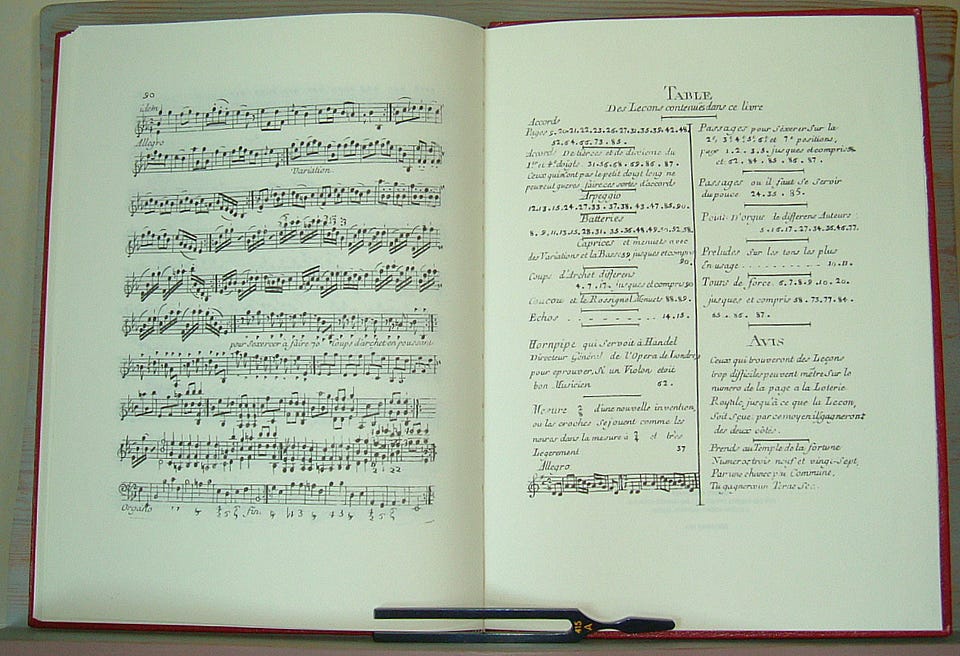 90
idem
Allegro
Variation
pour s'exercer à faire 70 coups d'archet en poussant
Organo
fin.
TABLE
Des Lecons contenües dans ce livre
Accords
Pages 5.20.21.22.23.26.27.31.35.39.42.48
52.54.65.73.85.
Accord De tierces et de dixieme du
1er et 4e doigts. 31.56.68.69.86.87.
Ceux qui n'ont pas le petit doigt long ne
peuvent gueres faire ces sortes d'accords
Arpeggio
12.13.15.24.27.33.37.38.43.47.85.90.
Batteries
8.9.11.13.15.28.31.35.36.48.49.50.52.58.
Caprices et menuets avec
des Variations et la Basse 59 jusques et compris
90.
Coups d'Archet differens
4.7.17. jusques et compris 90
Coucou et le Rossignol Menuets 88.89.
Echos 14.15.
Hornpipe qui servoit à Handel
Directeur Général de l'Opera de Londres
pour eprouver, Si un Violon etoit
bon Musicien 62.
Mesure d'une nouvelle invention,
ou les croches se jouent comme les
noires dans la mesure a et tres
Legerement 37
Allegro
Passages pour s'exercer Sur la
2e, 3e 4e 5e 6e et 7e positions,
page 1.2.3.5. jusques et compris
et 52.84.85.86.87.
Passages ou il faut se servir
du pouce 24.35.85.
Points D'orgue de differens Auteurs
5.16.17.27.34.35.46.77.
Preludes Sur les tons les plus
En usage 10.11.
Tours de force 6.7.8.9.10.20.
jusques et compris 58.73.77.84.
85.86.87.
AVIS
Ceux qui trouveront des Leçons
trop difficiles peuvent mêtre Sur le
numero de la page a la Loterie
Royale, jusqu'à ce que la Lecon,
Soit Sçue, par ce moyen ils gagneront
des deux côtés.
Prends au Temple de la fortune
Numeros trois neuf et vingt-Sept,
Par une chance peu Commune,
Tu gagneras un Terne Sec.
415
A